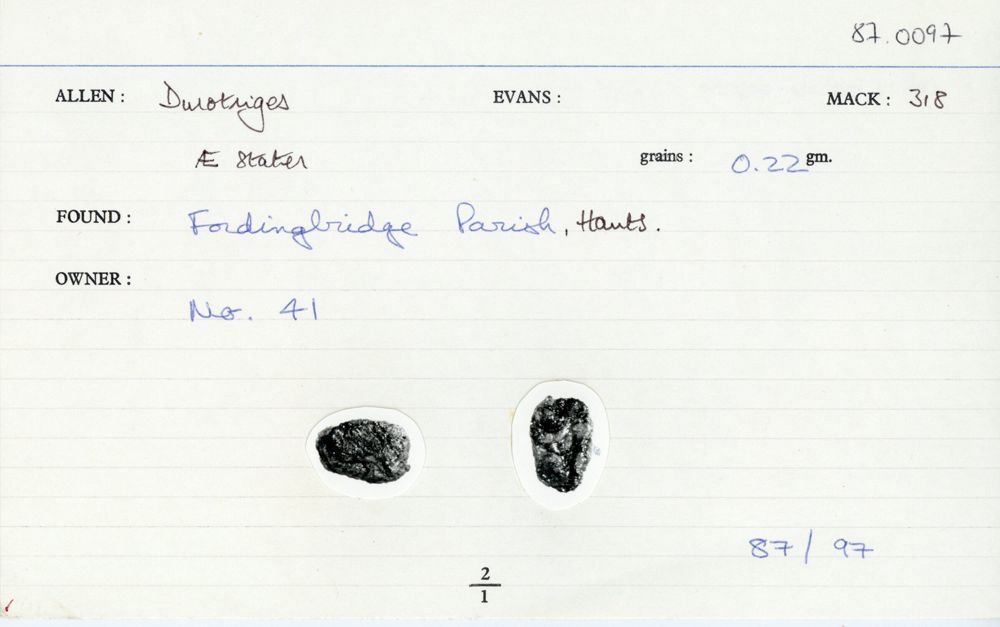 87.0097
ALLEN : Durotriges EVANS : MACK : 318
Æ Stater grains : 0.22 gm.
FOUND : Fordingbridge Parish, Hants.
OWNER :
No. 41
87/97
2
1